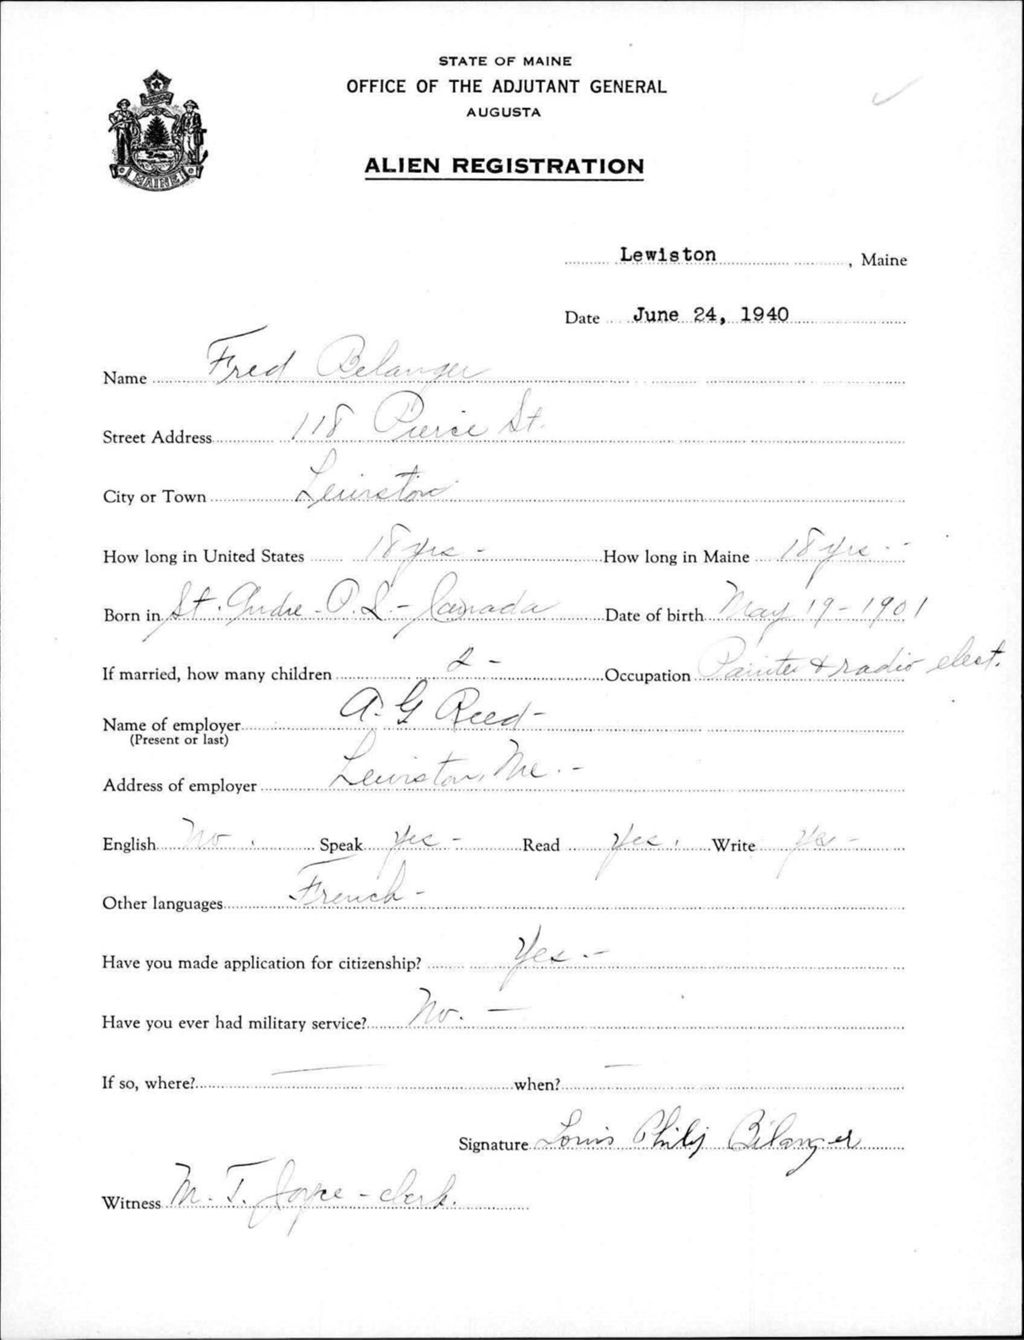 STATE OF MAINE
OFFICE OF THE ADJUTANT GENERAL
AUGUSTA
ALIEN REGISTRATION
MAINE
Lewiston, Maine
Date June 24, 1940
Name Fred Belanger
Street Address 118 Pierce St.
City or Town Lewiston
How long in United States 18 yrs - How long in Maine 18 yrs -
Born in St. Andre - P.Q. - Canada Date of birth May 19 - 1901
If married, how many children 2 - Occupation Painter + radio elect.
Name of employer A. G Reed -
(Present or last)
Address of employer Lewiston, Me. -
English No. Speak Yes - Read Yes. Write Yes -
Other languages French -
Have you made application for citizenship? Yes. -
Have you ever had military service? No. -
If so, where? — when? —
Signature Louis Philip Bélanger
Witness M. T. Joyce - clerk.